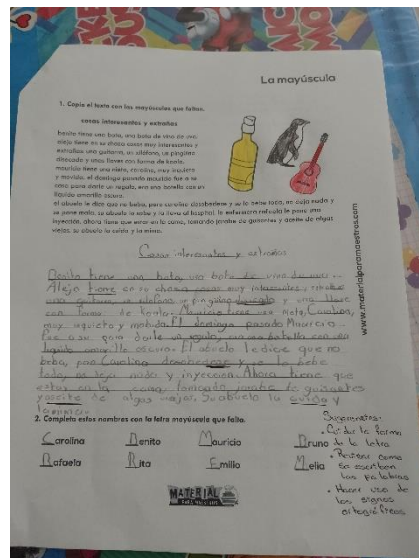 La mayúscula
1. Copia el texto con las mayúsculas que faltan.
cosas interesantes y extrañas
benito tiene una bota, una bota de vino de uva.
alejo tiene en su choza cosas muy interesantes y
extrañas: una guitarra, un teléfono, un pingüino
disecado y unas llaves con forma de
mauricio tiene una nieta, carolina, muy inquieta
y movida. el domingo pasado mauricio fue a su
casa para darle un regalo, era una botella con un
líquido amarillo oscuro.
el abuelo le dice que no beba, pero carolina desobedece y se lo bebe todo, se deja nada y
se pone mala. su abuelo la sube y la lleva al hospital. la enfermera rafaela le pone una
inyección. ahora tiene que estar en la cama, tomando jarabe de guisantes y aceite de algas
viejas. su abuelo la cuida y la mima.
www.materialparamaestros.com
Cosas interesantes y extrañas
Benito tiene una bota, una bota de vino de uva.
Alejo tiene en su choza cosas muy interesantes y
una guitarra, un telefono, un pinguino disecado y una llave
con forma de Mauricio tiene una nieta, Carolina,
muy inquieta y mobida. El domingo pasado Mauricio
Fue a su para darle un regalo, era una botella con un
liquido oscuro. El abuelo le dice que no
beba, pero Carolina y se lo bebe
todo, se deja nada y inyeccion. Ahora tiene que
estar en la cama, tomando jarabe de guisantes
de algas Su abuelo la cuida y
2. Completa estos nombres con la letra mayúscula que falta.
Carolina Benito Mauricio Bruno
Rafaela Rita Emilio Melia
MATERIAL
PARA MAESTROS
Sugerencias:
• Cuidar la forma
de la letra
• Revisar como
se escriben
las palabras
• Hacer uso de
los signos
ortográficos